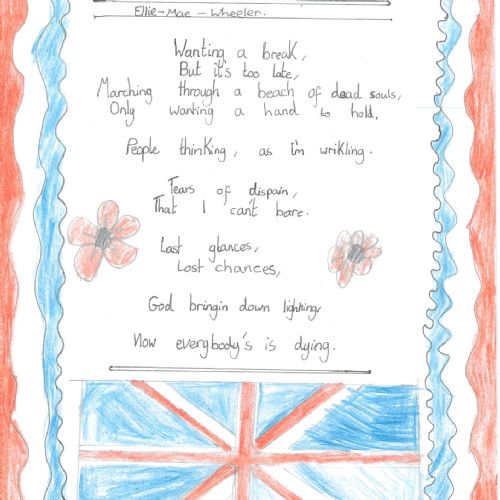 Ellie-Mae-Wheeler.
Wanting a break,
But it's too late,
Marching through a beach of dead souls,
Only wanting a hand to hold,
People thinking, as I'm wrikling.
Tears of dispain,
That I can't bare.
Last glances,
Lost chances,
God bringin down lighning
Now everybody's is dying.